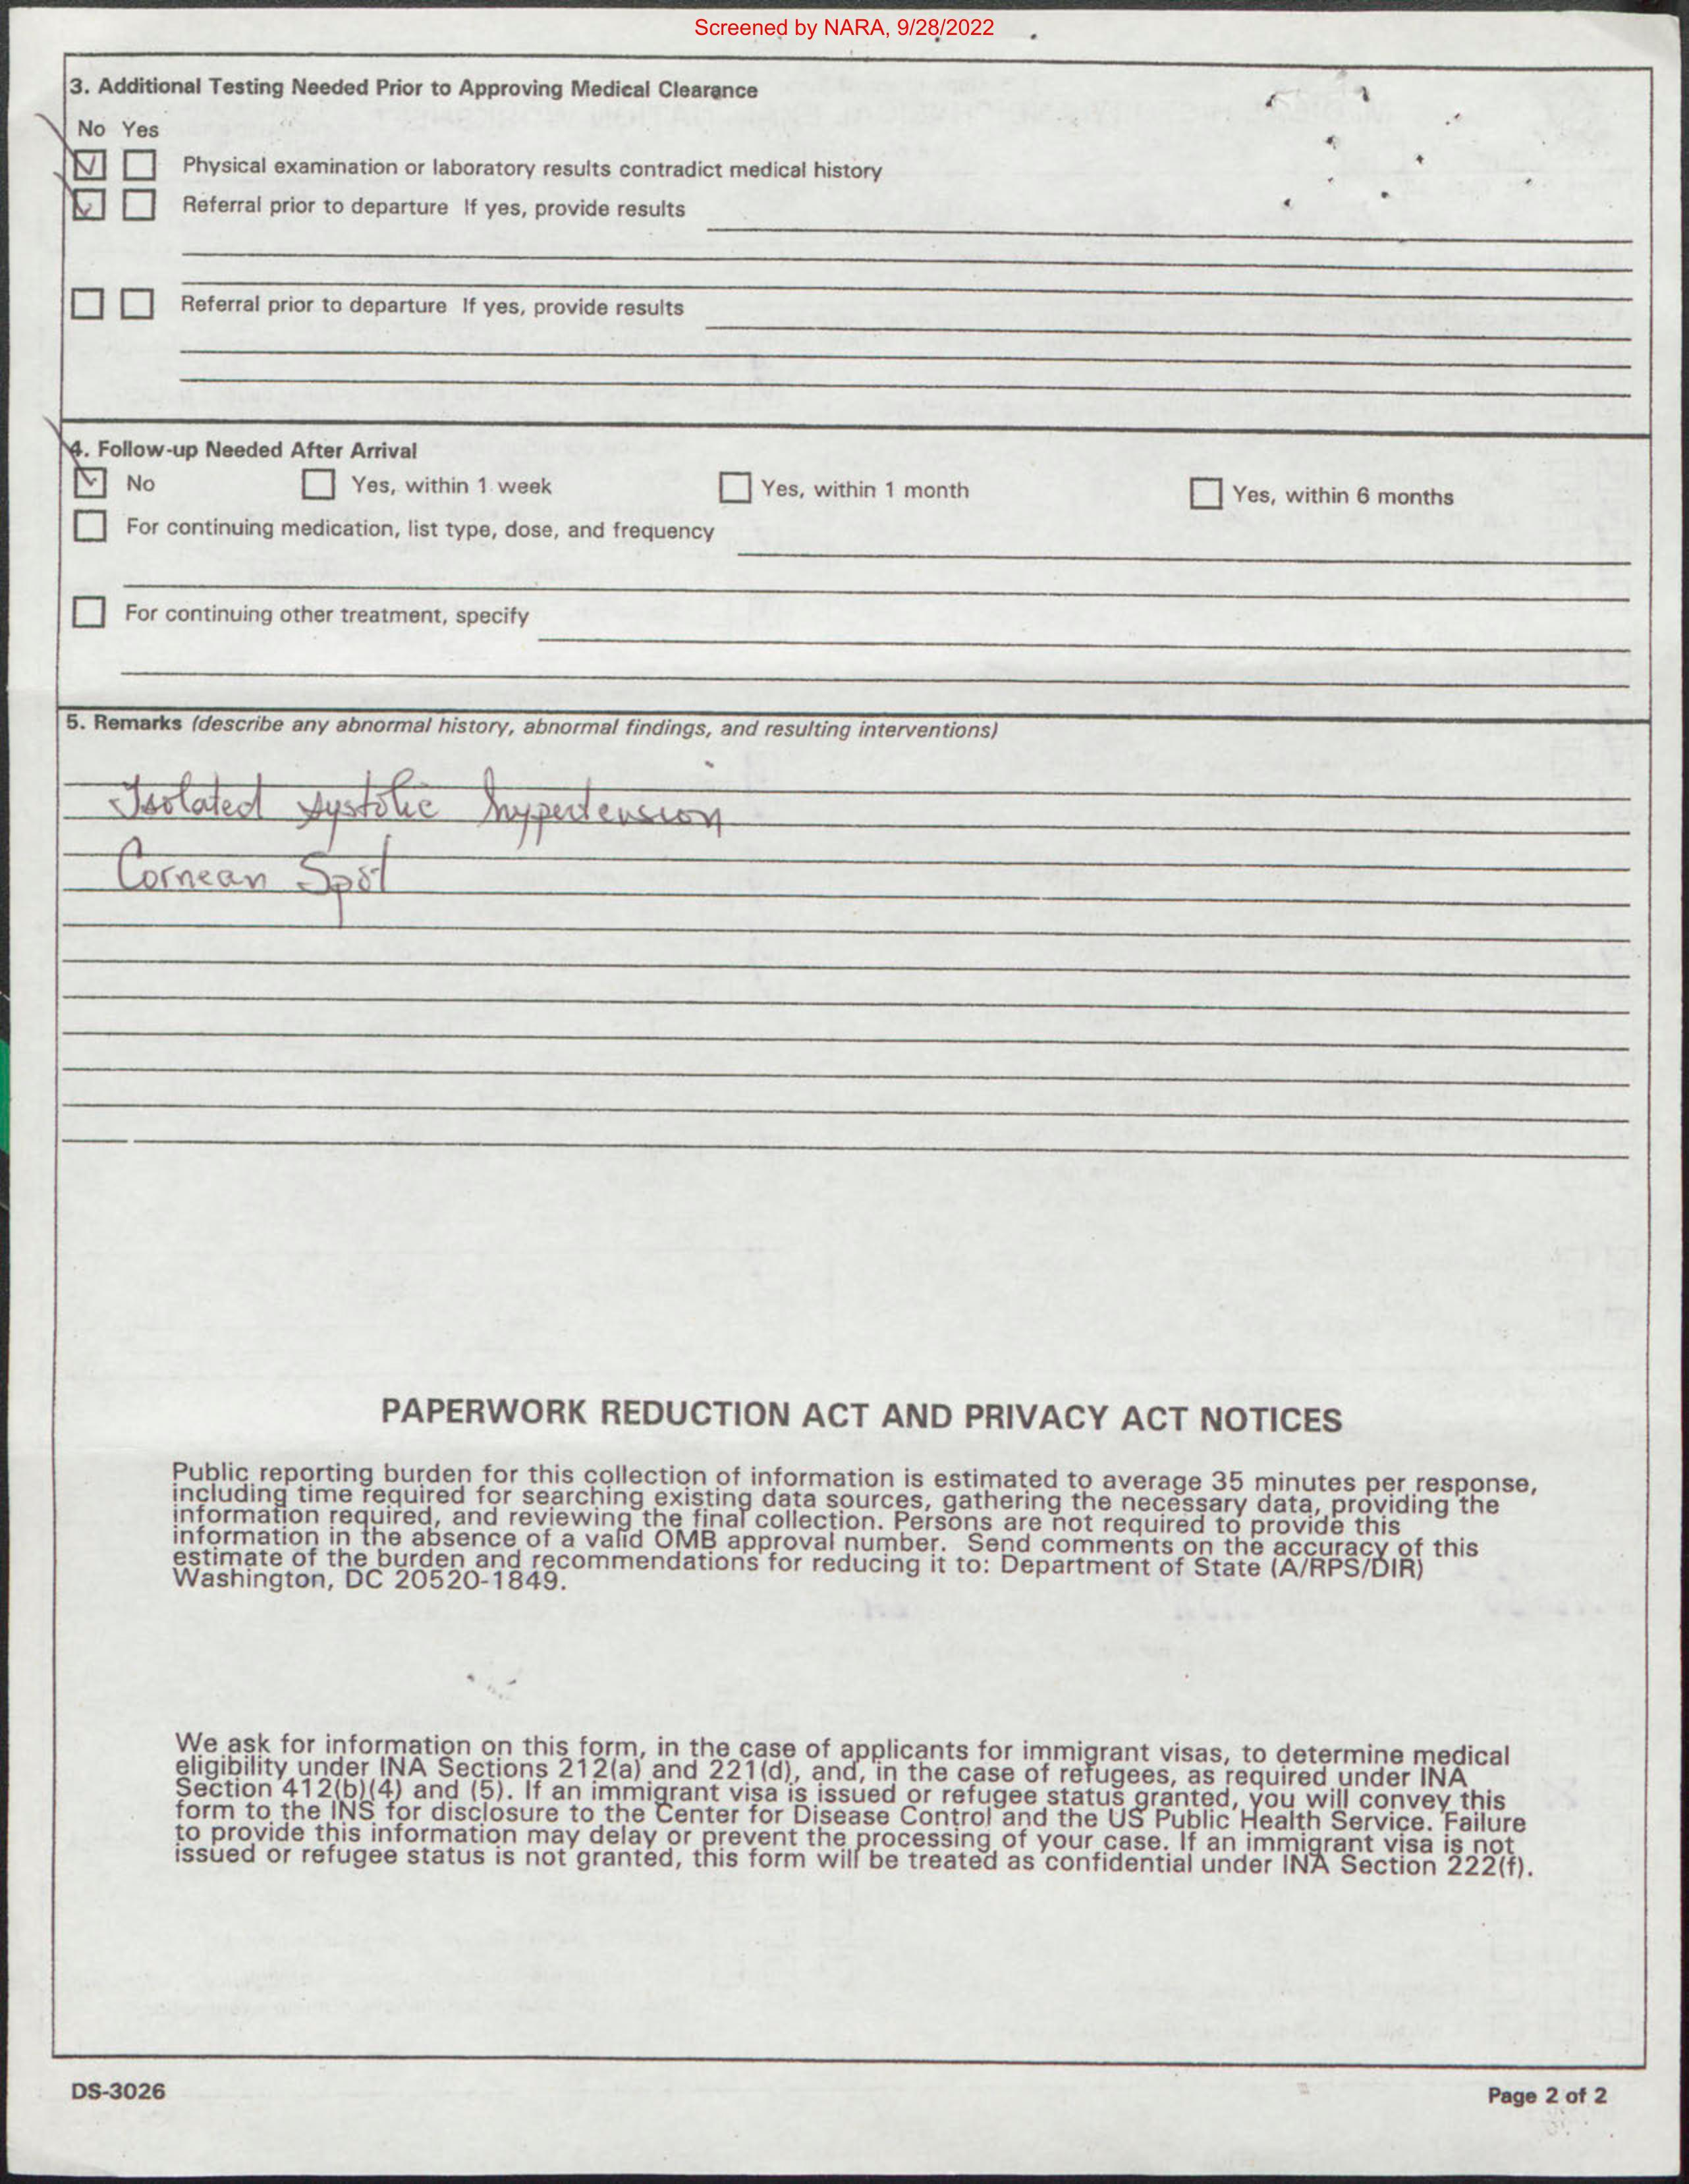 Screened by NARA, 9/28/2022
3. Additional Testing Needed Prior to Approving Medical Clearance
No Yes
Physical examination or laboratory results contradict medical history
Referral prior to departure If yes, provide results
Referral prior to departure If yes, provide results
4. Follow-up Needed After Arrival
No Yes, within 1 week Yes, within 1 month Yes, within 6 months
For continuing medication, list type, dose, and frequency
For continuing other treatment, specify
5. Remarks (describe any abnormal history, abnormal findings, and resulting interventions)
Isolated systolic hypertension
Cornean Spot
PAPERWORK REDUCTION ACT AND PRIVACY ACT NOTICES
Public reporting burden for this collection of information is estimated to average 35 minutes per response,
including time required for searching existing data sources, gathering the necessary data, providing the
information required, and reviewing the final collection. Persons are not required to provide this
information in the absence of a valid OMB approval number. Send comments on the accuracy of this
estimate of the burden and recommendations for reducing it to: Department of State (A/RPS/DIR)
Washington, DC 20520-1849.
We ask for information on this form, in the case of applicants for immigrant visas, to determine medical
eligibility under INA Sections 212(a) and 221(d), and, in the case of refugees, as required under INA
Section 412(b)(4) and (5). If an immigrant visa is issued or refugee status granted, you will convey this
form to the INS for disclosure to the Center for Disease Control and the US Public Health Service. Failure
to provide this information may delay or prevent the processing of your case. If an immigrant visa is not
issued or refugee status is not granted, this form will be treated as confidential under INA Section 222(f).
DS-3026
Page 2 of 2